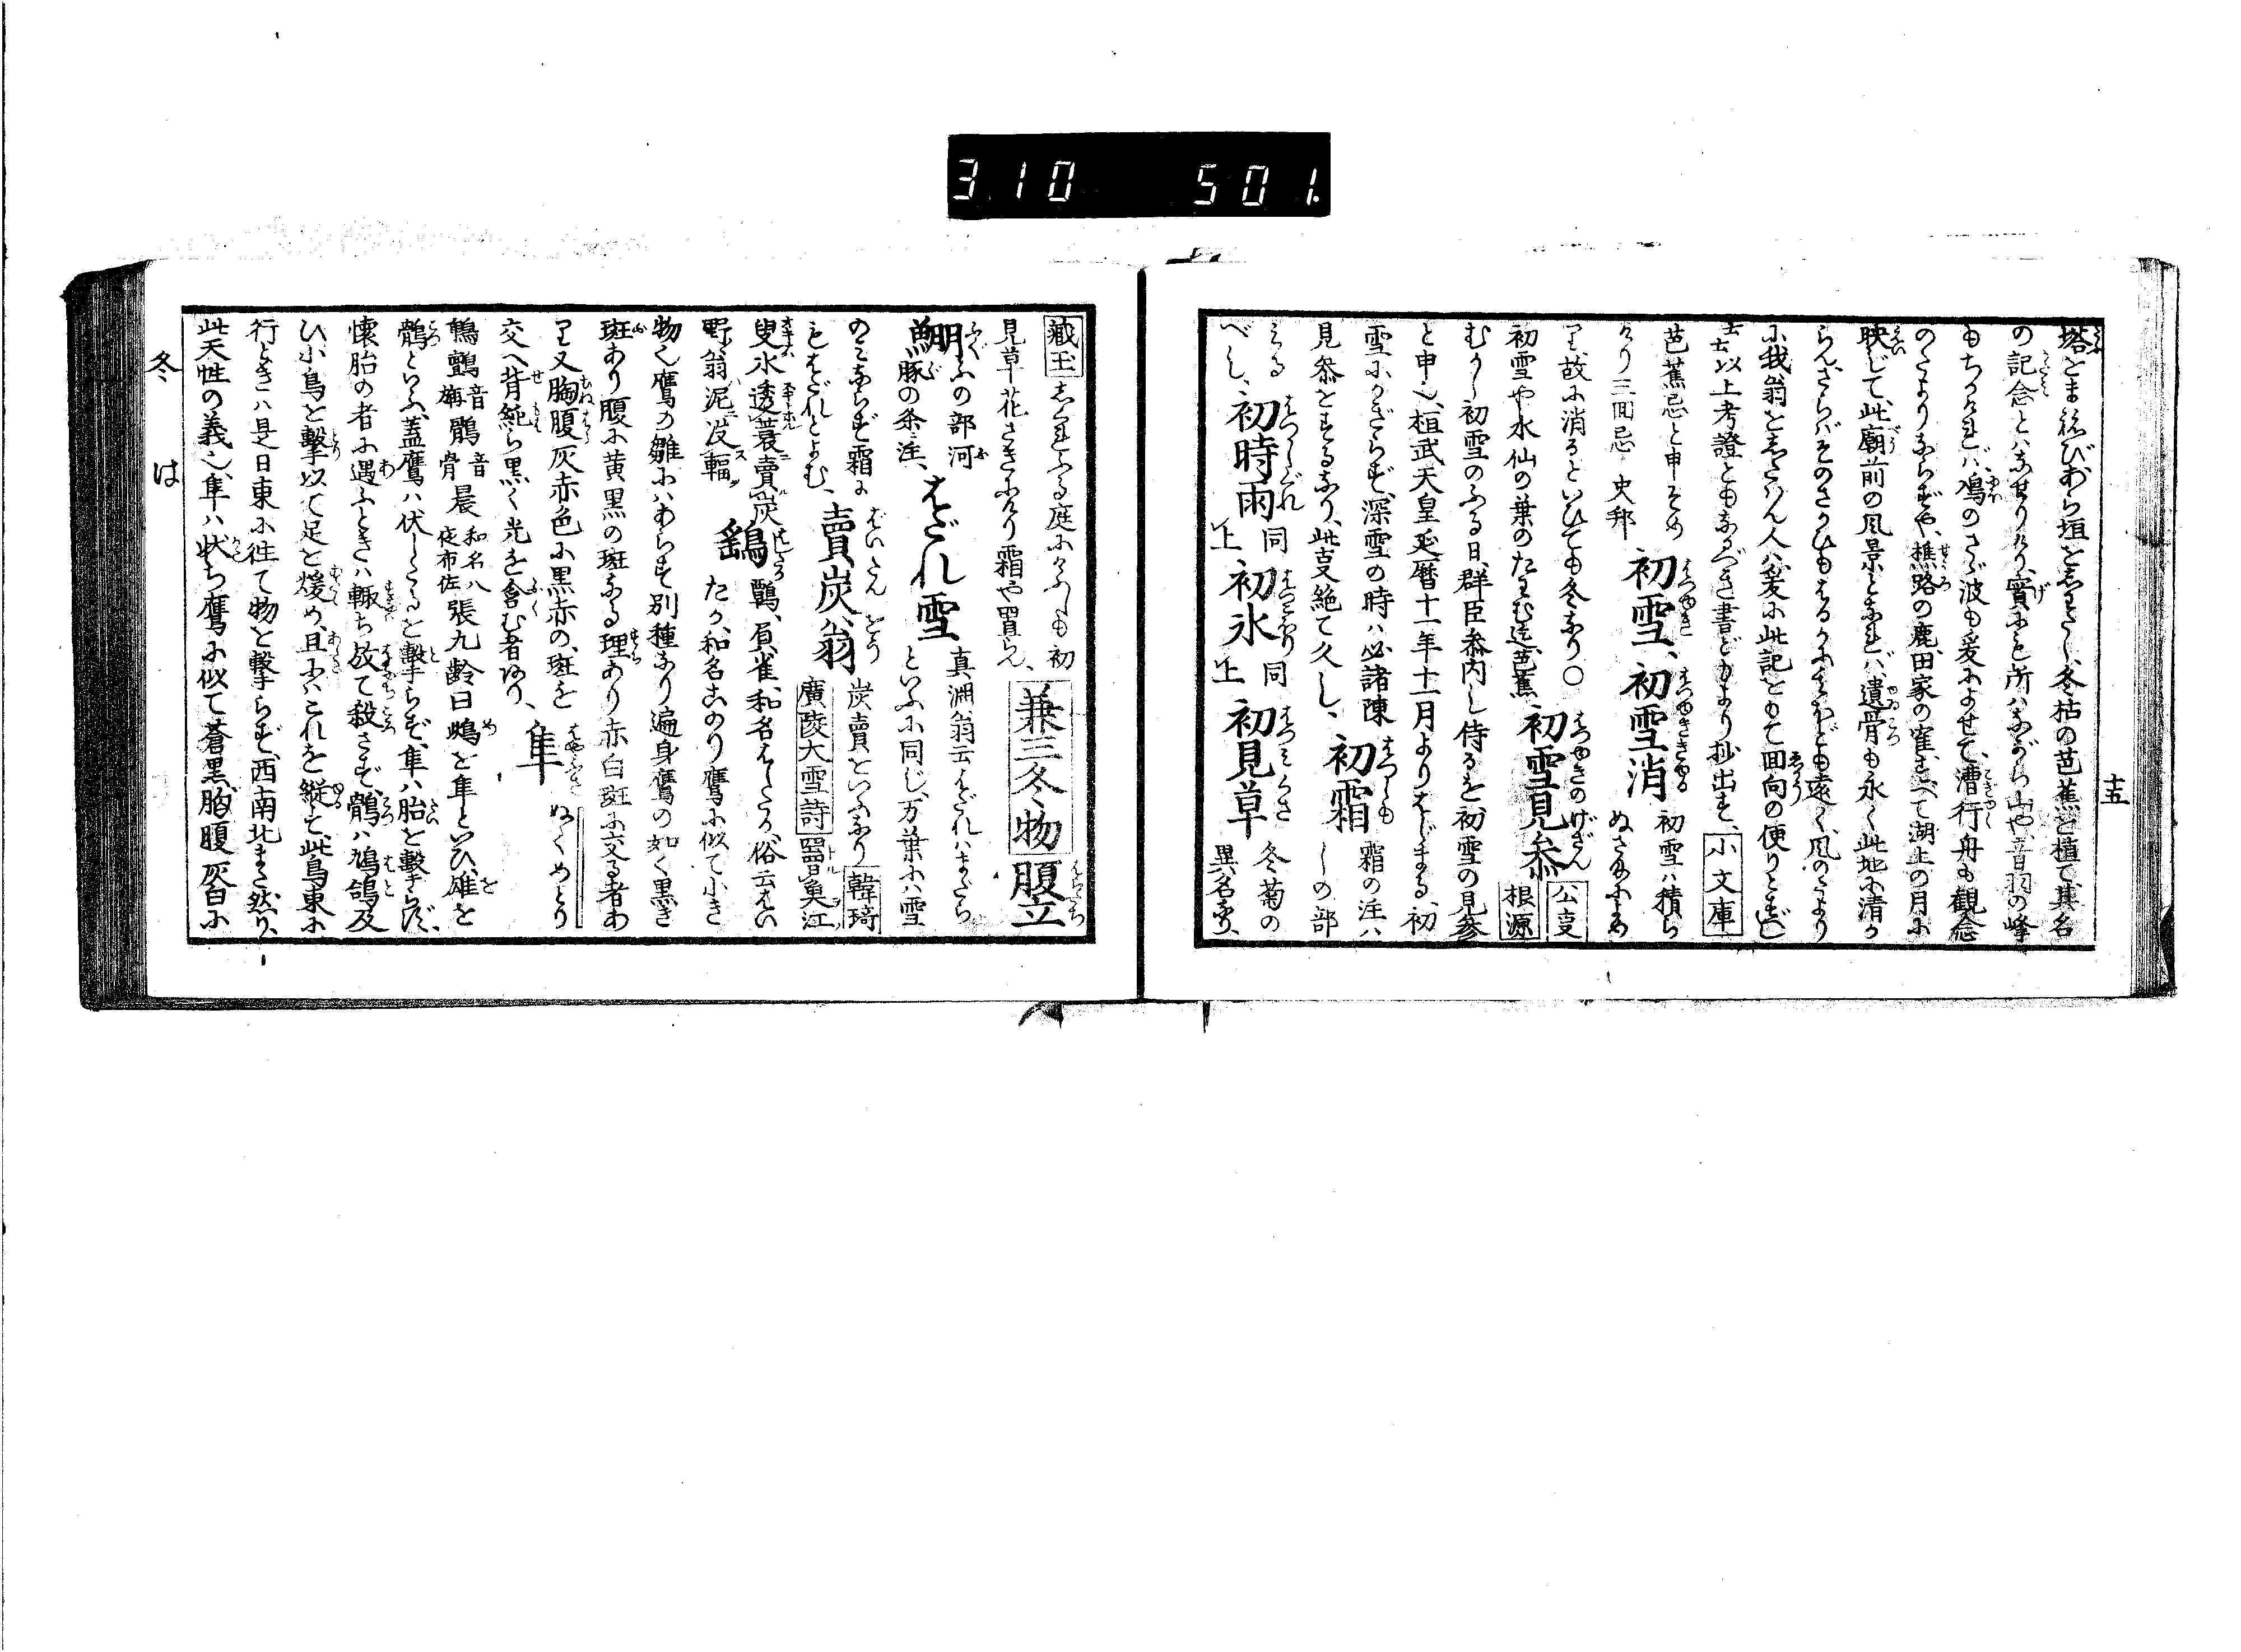 310 501.
十五
塔をまねびあら垣をしわたし、冬枯の芭蕉を植て其名
の記念とハなせりけり、實にも所ハながら山や、音羽の峰
もちかけれバ、鳰のさゞ波も爰によせて、漕行舟も觀念
のたよりならずや、樵路の鹿田家の寉、すべて湖上の月に
映じて、此廟前の風景となれバ、遺骨も永く此地に清か
らん、さらバそのさかひもはるかにさかども遠く、風のたより
に我翁をしたハん人ハ、爰に此記をもて回向の便りとすべし
以上考證ともなるべき書どもより抄出す、小文庫
芭蕉忌と申そめ
けり三囘忌 史邦 初雪、初雪消 初雪ハ積ら
ぬさ
り故に消るといひても冬なり〇
初雪や水仙の葉のたわむ迄芭蕉 初雪見參 公亊根源
むかし初雪のふる日、群臣參内し侍るを初雪の見參
と申也、桓武天皇延暦十一年十一月よりはじまる、初
雪にかぎらず、深雪の時ハ必諸陳
見參をするなり、此亊絶て久し、 初霜 霜の注ハ
しの部
べし、初時雨 同上 初氷 同上 初見草 冬菊の
異名なり、
藏玉 ふる庭に も初
見草花さきにけり霜や置らん、 兼三冬物 腹立
ふの部河
豚の条注、 はだれ雪 真淵翁云はだれハまだら
といふに同じ、万葉にハ雪
のミならず霜に
もはだれとよむ、 賣炭翁 炭賣といふなり 韓琦
廣陵大雪詩 奚江
叟氷透蓑賣炭
野翁泥没輻 鷂 鸇、負雀、和名はしたか、俗云はい
たか、和名このり鷹に似て小き
物也鷹の雛にハあらず別種なり遍身鷹の如く黒き
斑あり腹に黄黒の斑なる理あり赤白斑に交る者あ
り又胸腹灰赤色に黒赤の斑を
交へ背純ら黒く光を含む者あり、 隼 ぬくめどり
鸇音旃鶻音骨晨 和名八夜布佐 張九齡曰鴂を隼といひ、雄を
鶻といふ、蓋鷹ハ伏したるを撃らず、隼ハ胎を撃らず、
懐胎の者に遇ふときハ輙ち放て殺さず、鶻ハ鳩鴿及
ひ小鳥を撃以て足を煖め、且にハこれを縦て、此鳥東に
行ときハ是日東に往て物を撃らず、西南北また然り、
此天性の義也、隼ハ状ち鷹に似て蒼黒胸腹灰白に
冬 は